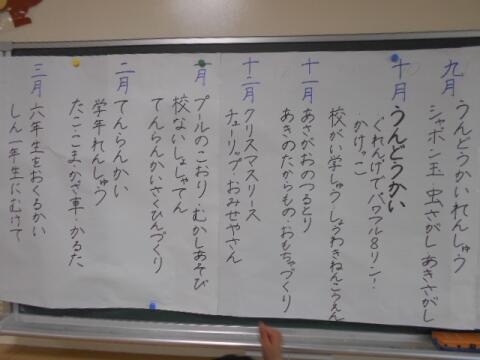 九月
うんどうかいれんしゅう
シャボン玉 虫さがし あきさがし
十月
うんどうかい
ぐれんげでパワフル8リン!
かけっこ
校がい学しゅう しょうわきねんこうえん
十一月
あさがおのつるとり
あきのたからもの・おもちゃづくり
十二月
クリスマスリース
チューリップ・おみせやさん
一月
プールのこおり・むかしあそび
校ないしょしゃてん
てんらんかいさくひんづくり
二月
てんらんかい
学年れんしゅう
たこ・こま・かざ車・かるた
三月
六年生をおくるかい
しん一年生にむけて